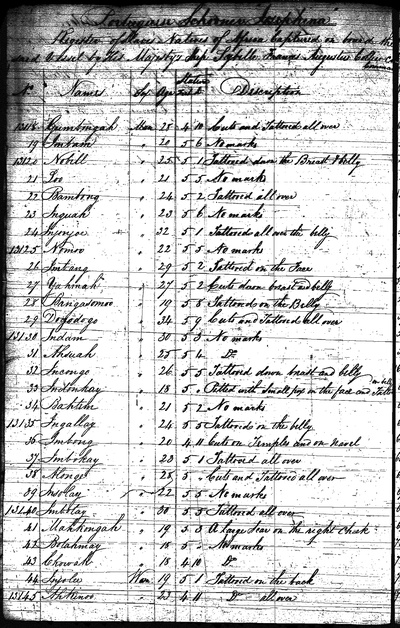 Portuguese Schooner Josephina
Register of Slaves Natives of Africa Captured on board the
said Vessel by His Majesty's Ship Sybille Francis Augustus Collier
No Names Sex Age Stature Description
13118 Gumbingah Man 28 4 10 Cuts and Tattored all over
19 Imbam " 20 5 6 No marks
13120 Nobell " 25 5 1 Tattored down the Breast & belly
21 Too " 21 5 5 No marks
22 Bambong " 24 5 2 Tattored all over
23 Inguah " 23 5 6 No marks
24 Injonjoe " 32 5 1 Tattored all over the belly
13125 Nomoo " 22 5 5 No marks
26 Imbang " 29 5 2 Tattored on the Face
27 Yahmah " 27 5 2 Cuts down breast and belly
28 Pangasomoo " 19 5 8 Tattored on the Belly
29 Dogodogo " 34 5 9 Cuts and Tattored all over
13130 Indam " 30 5 3 No marks
31 Ahsuah " 25 5 4 Do
32 Incongo " 26 5 5 Tattored down breast and belly
33 Indonkay " 18 5 - Pitted with small pox in the face and Tattd on belly
34 Bahtim " 21 5 2 No marks
13135 Ingallay " 24 5 5 Tattored on the belly
36 Imbong " 20 4 11 Cuts on Temples and on navel
37 Imbokay " 23 5 1 Tattored all over
38 Monge " 28 5 - Cuts and Tattored all over
39 Insolay " 22 5 5 No marks
13140 Imbolay " 30 5 5 Tattored all over
41 Mahkongah " 19 5 3 A large Scar on the right Cheek
42 Bolahmay " 18 5 - No marks
43 Chowah " 18 4 10 Do
44 Insolee Wom 19 5 1 Tattored on the back
13145 Ahkenoo " 23 4 11 Do all over